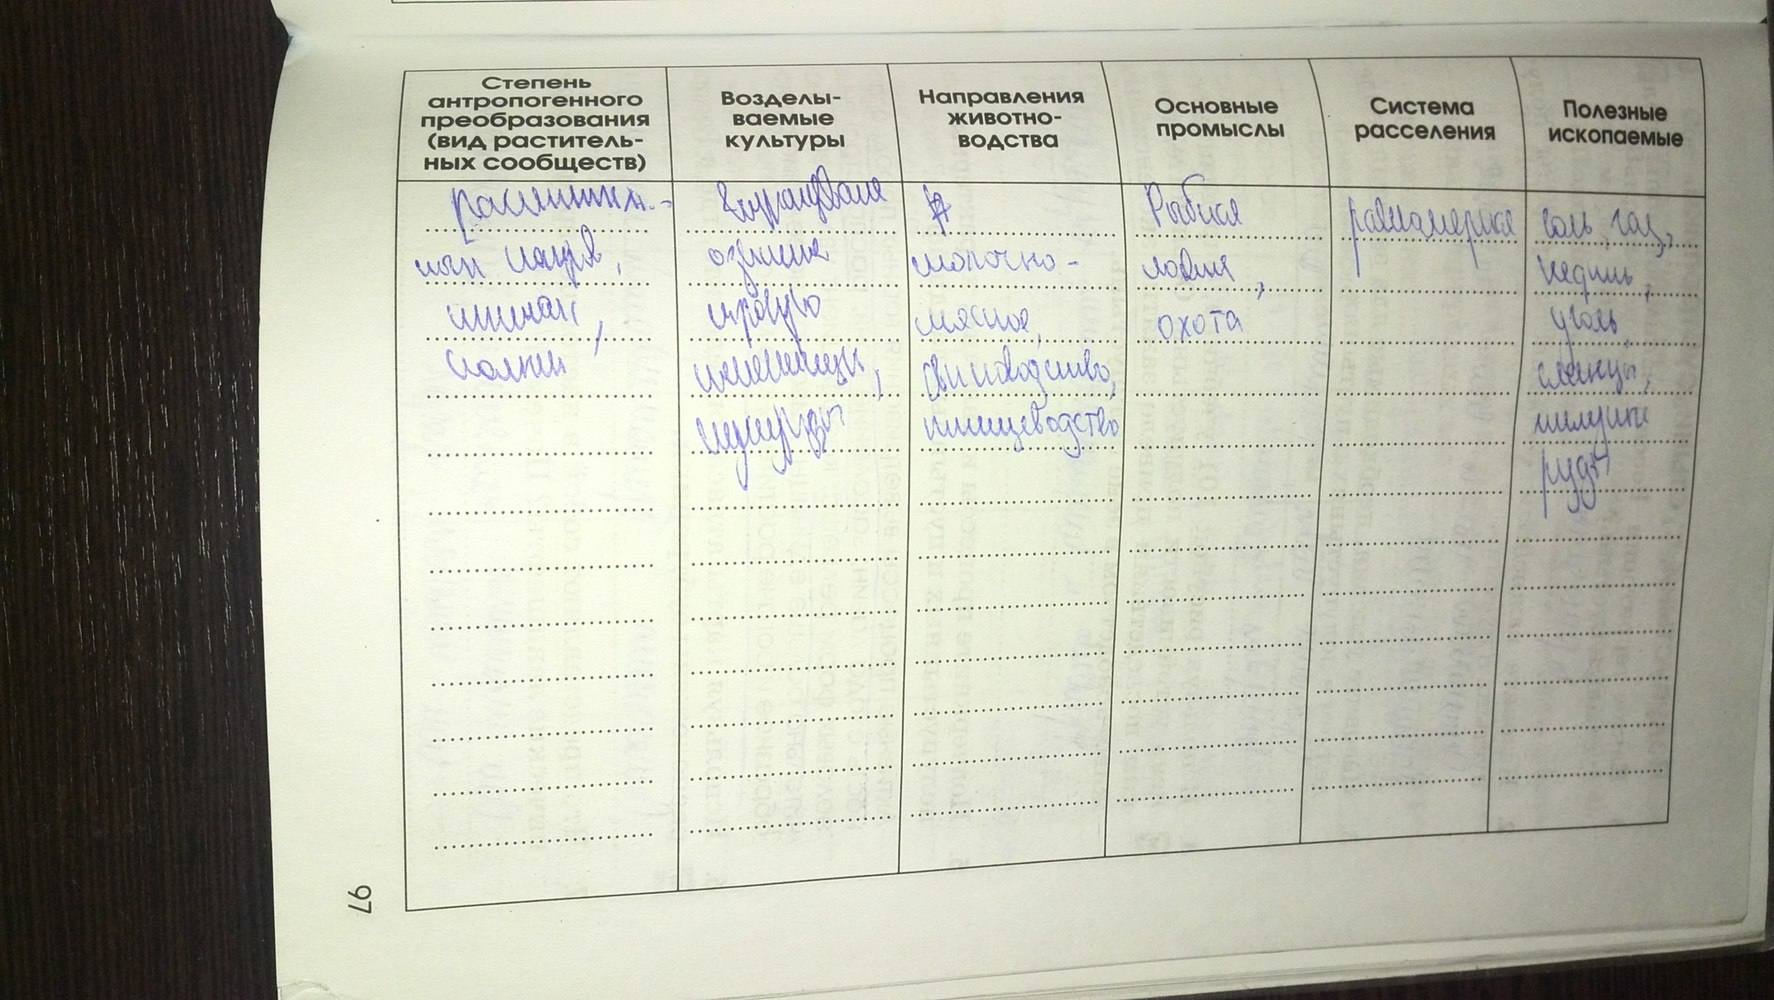 Степень
антропогенного
преобразования
(вид раститель-
ных сообществ)
Возделы-
ваемые
культуры
Направления
животно-
водства
Основные
промыслы
Система
расселения
Полезные
ископаемые
озимые
яровую
пшеницы,
кукурузы
молочно-
мясное,
свиноводство,
птицеводство
Рыбная
ловля,
охота
равномерная
соль, газ,
уголь,
сланцы,
руды
97